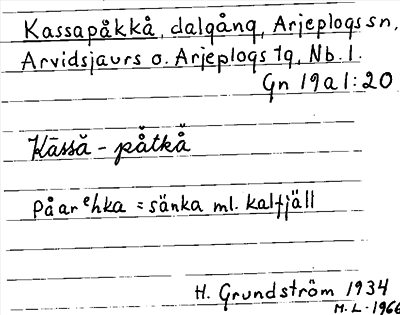 Kassapåkkå, dalgång, Arjeplogs sn,
Arvidsjaurs o. Arjeplogs tg, Nb. l.
Gn 19 a 1:20
Kāssă - påtkă
påarehka = sänka ml. kalfjäll
H. Grundström 1934
M.L. 1966